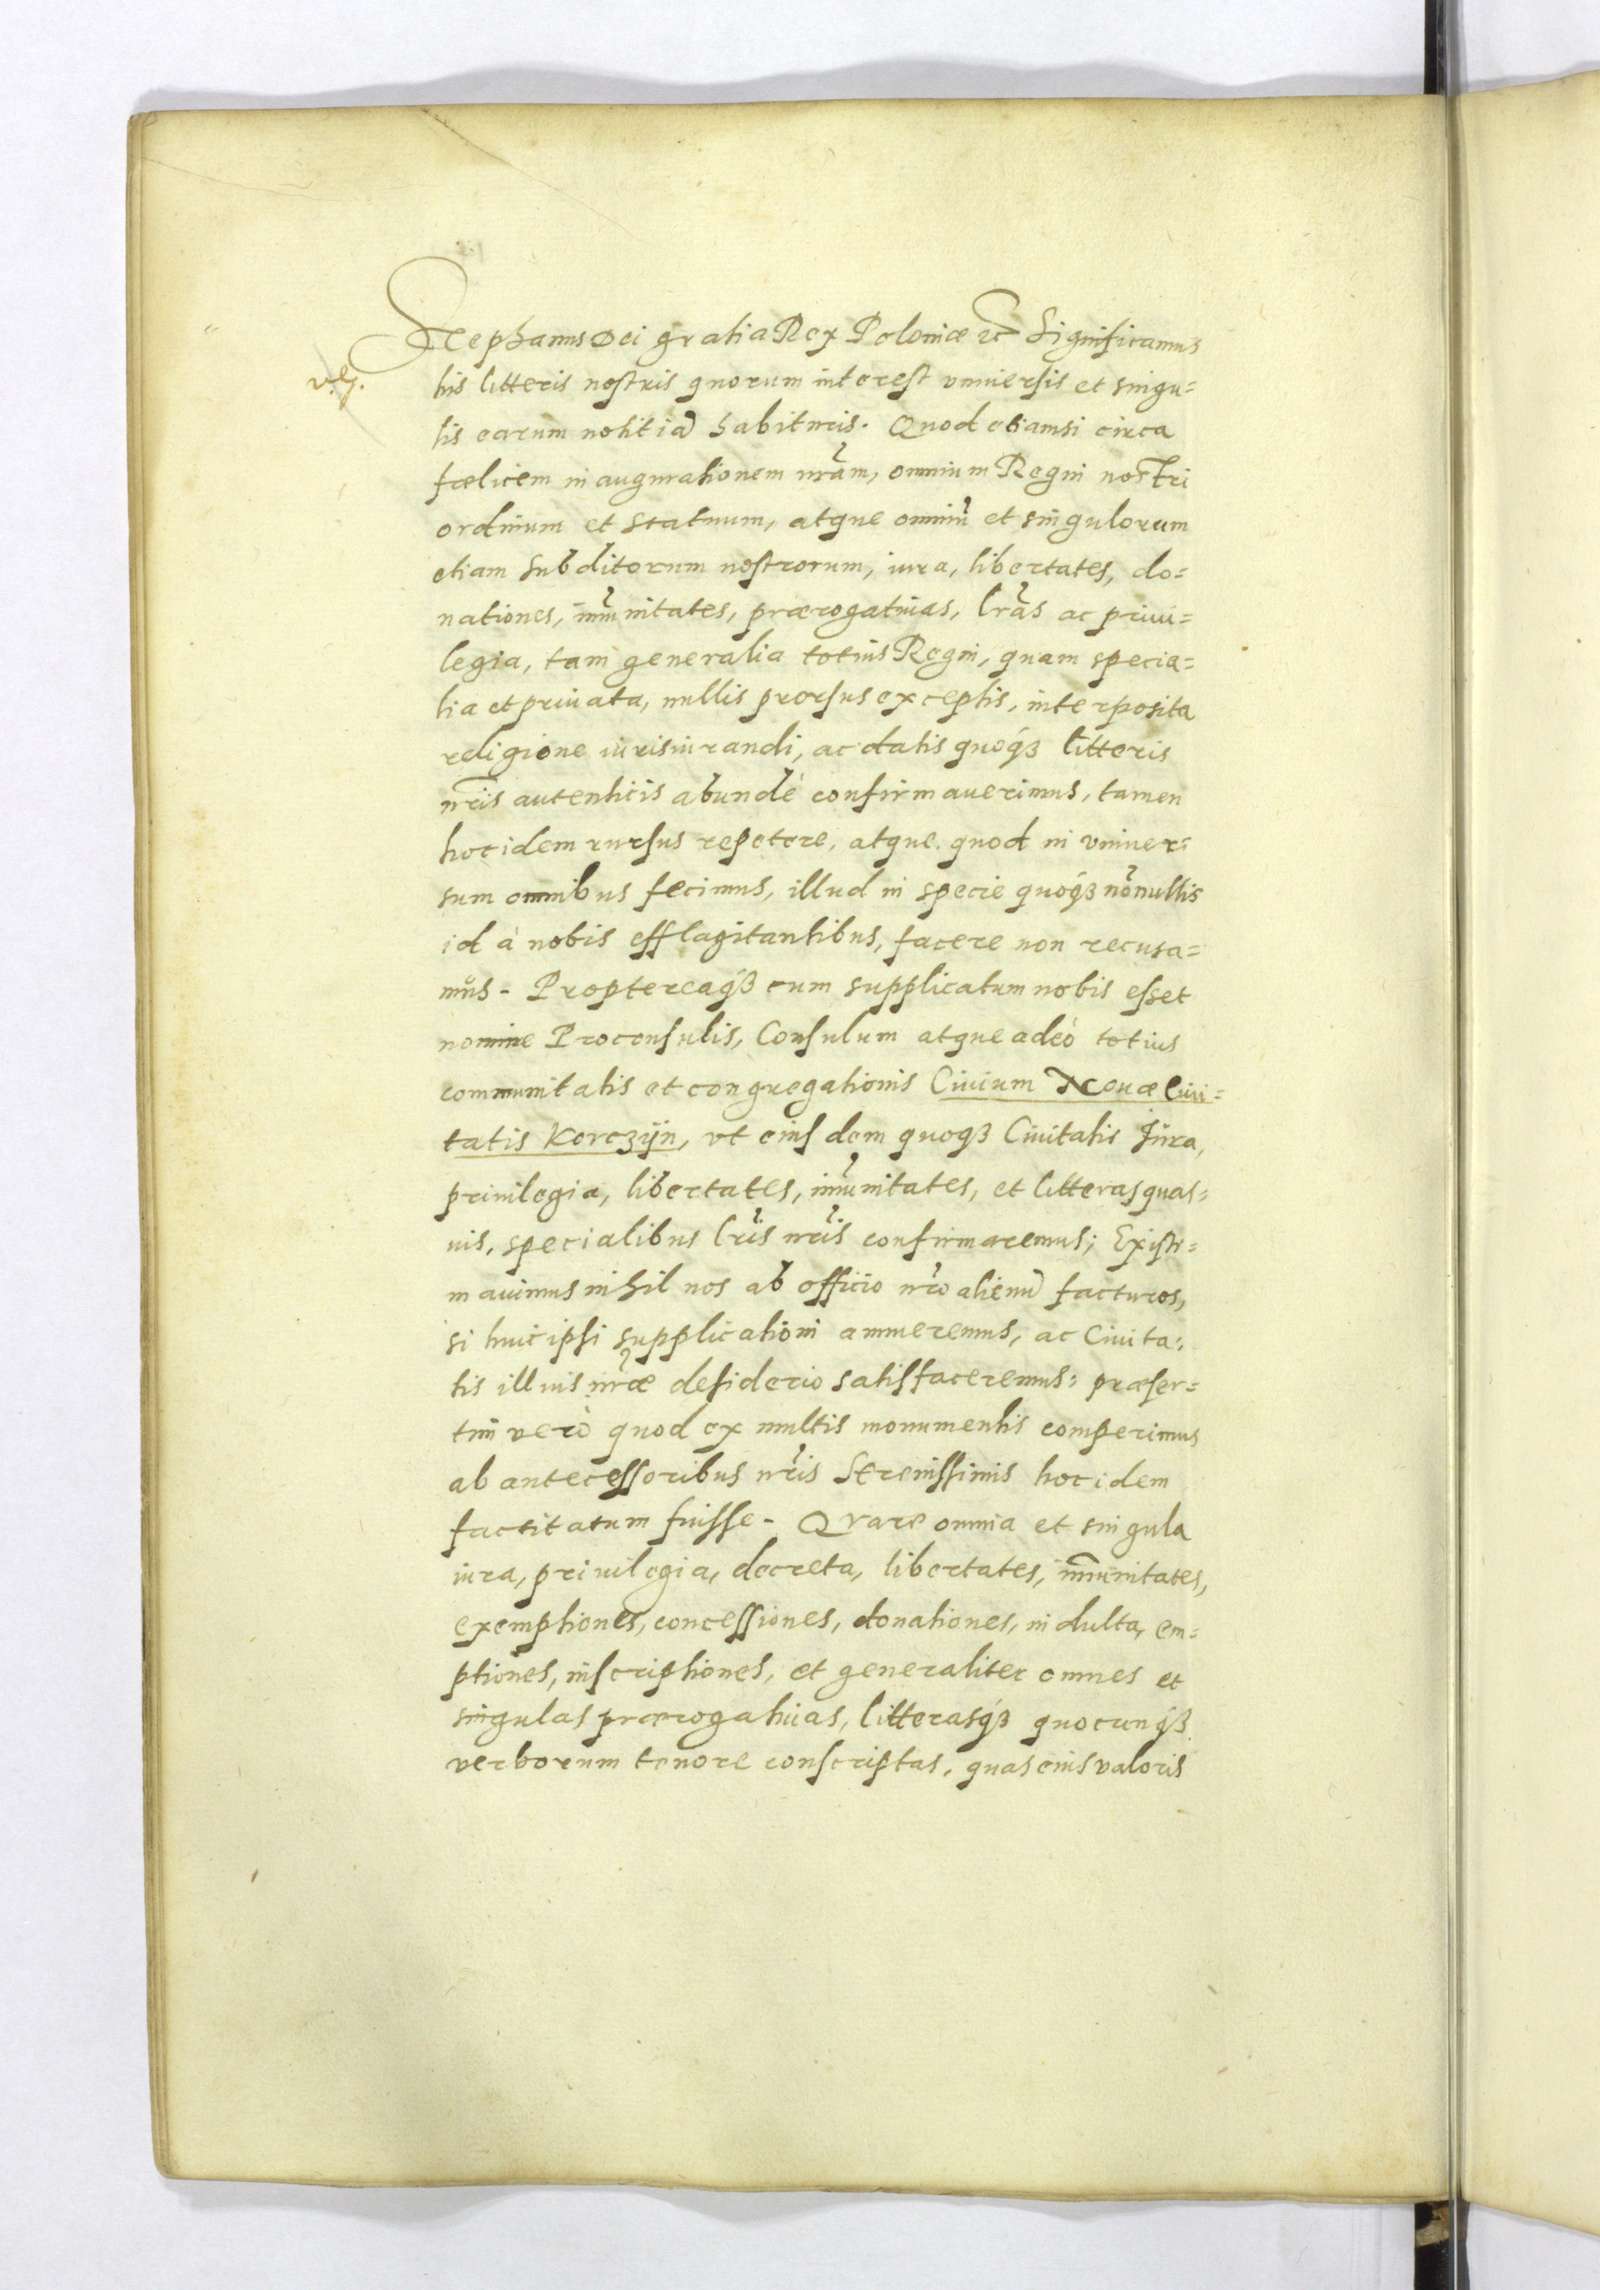 Stephanus Dei gratia Rex Poloniæ etc Significamus
his litteris nostris quorum interest vniuersis et singu=
lis earum notitiã habituris. Quod etiamsi circa
fœlicem inaugurationem nrãm, omnium Regni nostri
ordinum et statuum, atque omniũ et singulorum
etiam subditorum nostrorum, iura, libertates, do=
nationes, im̃unitates, prærogatiuas, lrãs ac priui=
legia, tam generalia totius Regni, quam specia=
lia et priuata, nullis prorsus exceptis, interposita
religione iurisiurandi, ac datis quoq́ꝫ litteris
nr̃is autenticis abundè confirmauerimus, tamen
hoc idem rursus repetere, atque quod in vniuer=
sum omnibus fecimus, illud in specie quoq́ꝫ nõnullis
id à nobis efflagitantibus, facere non recusa=
mus. Proptereaq́ꝫ cum supplicatum nobis esset
nomine Proconsulis, Consulum atque adeò totius
communitatis et congregationis Ciuium Nouæ Ciui=
tatis Korczÿn, vt eiusdem quoqꝫ Ciuitatis Jura,
priuilegia, libertates, im̃unitates, et litteras quas=
uis, specialibus lr̃is nr̃is confirmaremus; Existi=
mauimus nihil nos ab officio nrõ alienũ facturos,
si huic ipsi supplicationi annueremus, ac Ciuita=
tis illius nr̃æ desiderio satisfaceremus: præser=
tim verò quod ex multis monumentis comperimus
ab antecessoribus nr̃is Serenissimis hoc idem
factitatum fuisse. Quare omnia et singula
iura, priuilegia, decreta, libertates, im̃unitates,
exemptiones, concessiones, donationes, indulta, em=
ptiones, inscriptiones, et generaliter omnes et
singulas prærogatiuas, litterasq́ꝫ quocunq́ꝫ
verborum tenore conscriptas, quas eius valoris